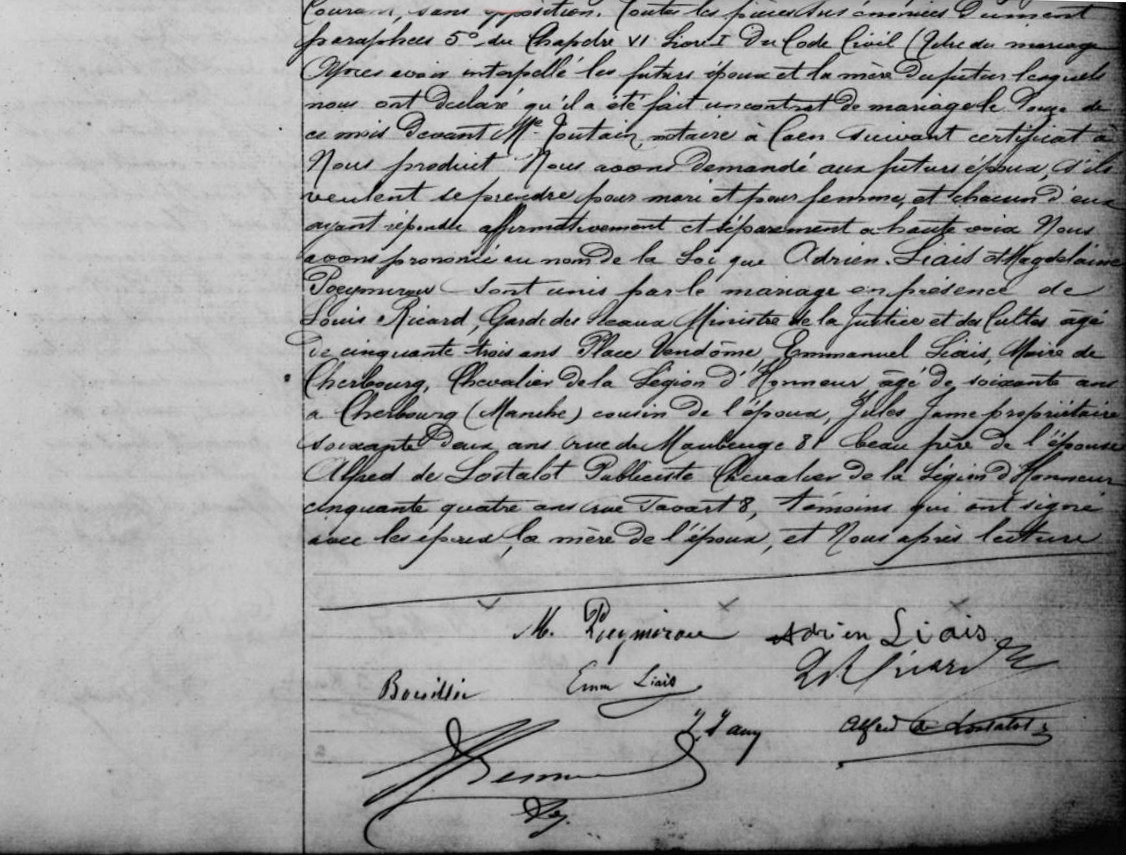 Courant, sans opposition. Toutes les pièces sus énoncées Dument
paraphées 5º du Chapitre VI Livre I Du Code Civil (Titre du mariage
Après avoir interpellé les futurs époux et la mère du futur lesquels
nous ont déclaré qu'il a été fait un contrat de mariage le Douze de
ce mois Devant Me notaire à Caen suivant certificat à
Nous produit Nous avons demandé aux futurs époux, s'ils
veulent se prendre pour mari et pour femme, et chacun d'eux
ayant répondu affirmativement et séparement a haute voix Nous
avons prononcé au nom de la Loi que Adrien Liais et Magdelaine
Poeymirau sont unis par le mariage en présence de
Louis Ricard, Garde des Sceaux Ministre de la Justice et des Cultes, âgé
de cinquante trois ans Place Vendôme, Emmanuel Liais, Maire de
Cherbourg, Chevalier de la Légion d'Honneur, âgé de soixante ans
a Cherbourg (Manche) cousin de l'époux, Jules Jame propriétaire
soixante deux ans rue du Maubeuge 81 beau frère de l'épouse
Alfred de Lostalot Publiciste Chevalier de la Légion d'Honneur
cinquante quatre ans rue Favart 8, témoins qui ont signé
avec les époux, la mère de l'époux, et Nous après lecture
M. Poeymirau Adrien Liais
L Ricard
Emm Liais
J. Jame Alfred de Lostalot